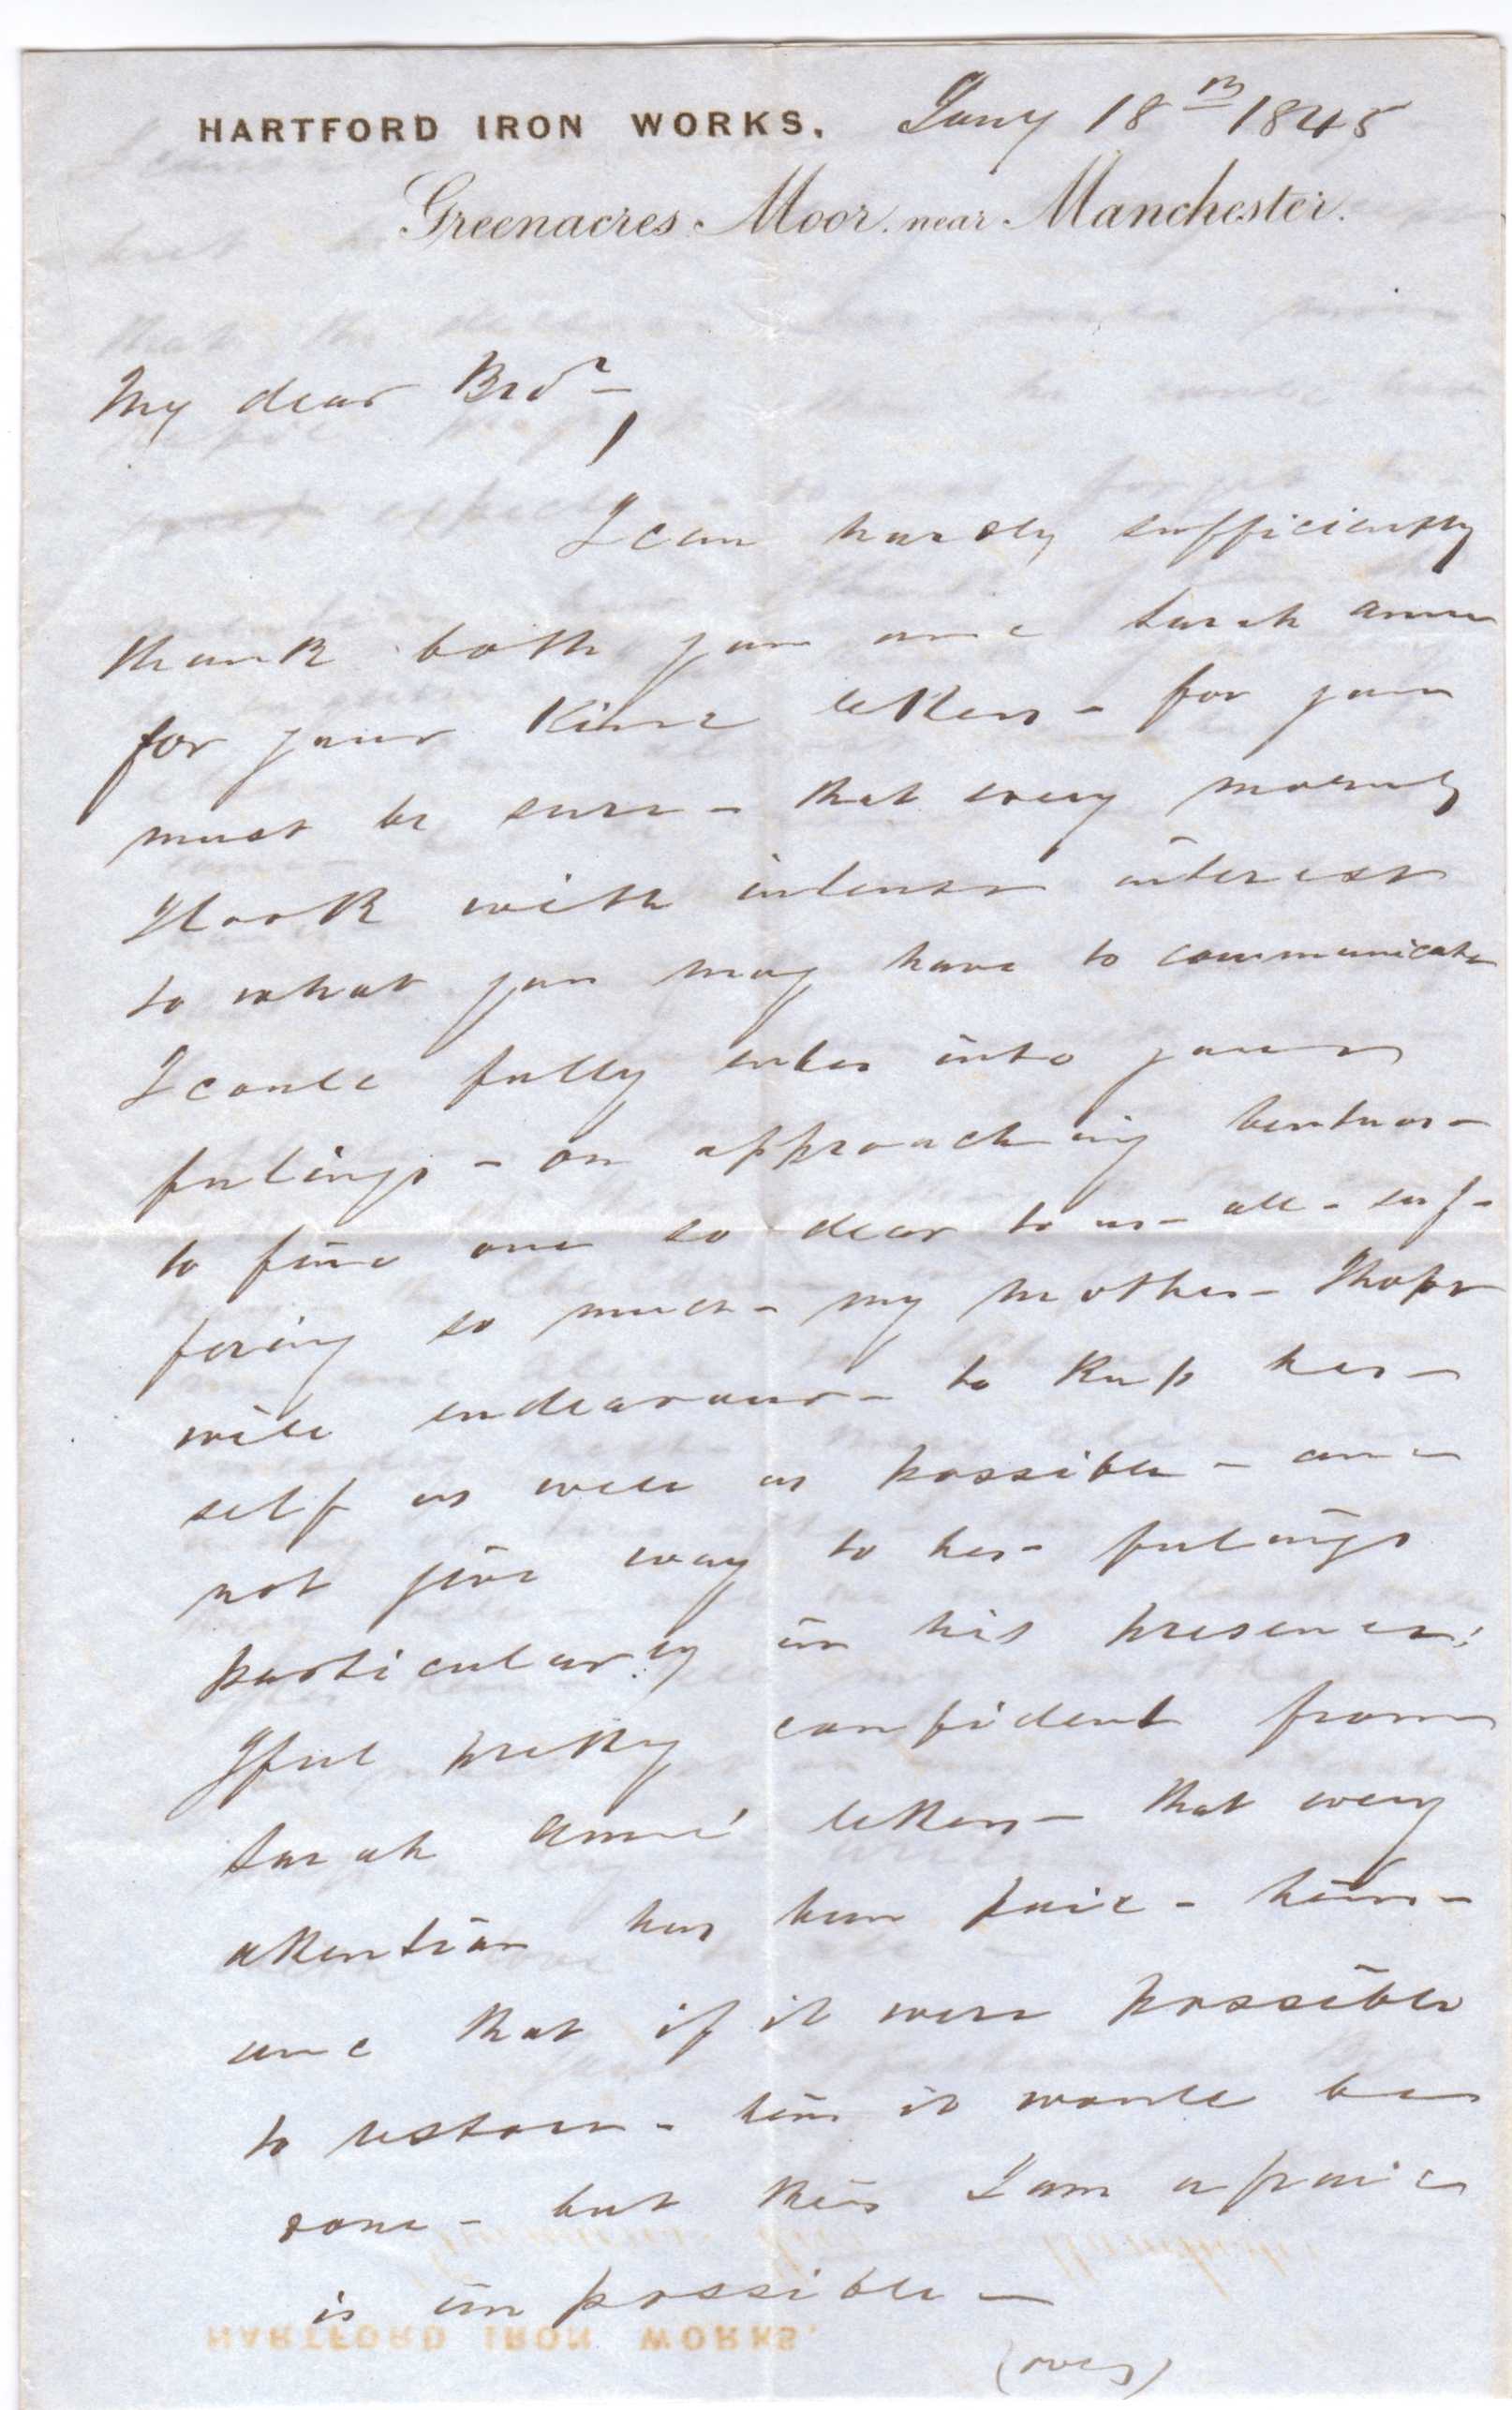 HARTFORD IRON WORKS, Jany 18th 1845
Greenacres Moor, near Manchester.
My dear Bror,
I can hardly sufficiently
thank both you and Sarah Anne
for your kind letters - for you
must be sure - that every morning
I look with intense interest
to what you may have to communicate
I could fully enter into your
feelings - on approaching
to find one so dear to us - all - suf-
fering so much - my mother - I hope
will endeavour - to keep her-
self as well as possible - and
not give way to her - feelings
particularly in his presence:
I feel pretty confident from
Sarah Anne's letters - that every
attention has been paid - him -
and that if it were possible
to restore - him it would be
done - but this I am afraid
is impossible -
(over)
HARTFORD IRON WORKS,